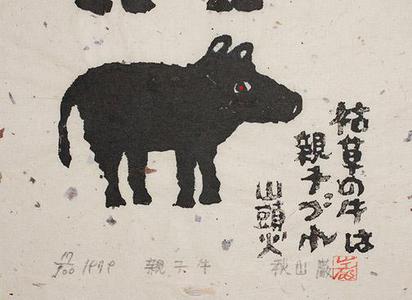 枯草の牛は
親子づれ
山頭火
17/100 1999 親子牛 秋山巌